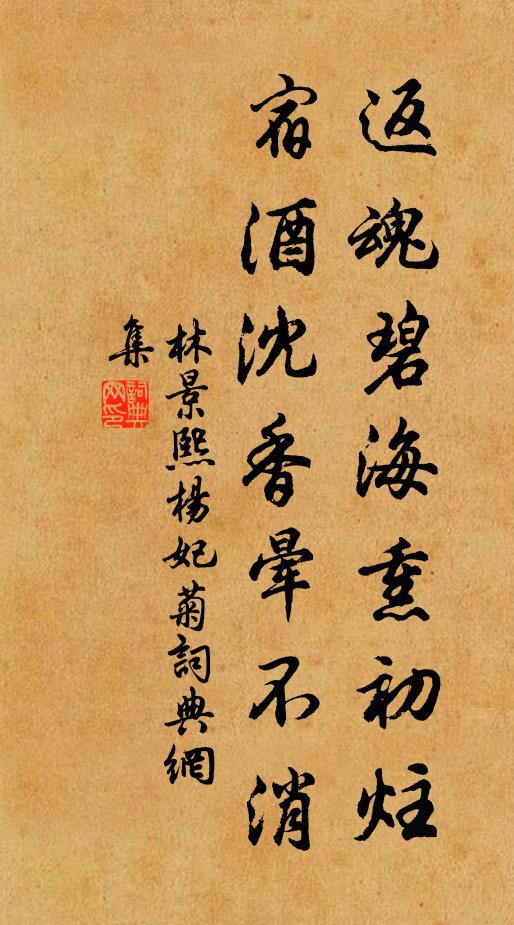 返魂碧海熏初炷
宿酒沈香暈不消
林景熙楊妃菊詞典網
集
詞典
网印